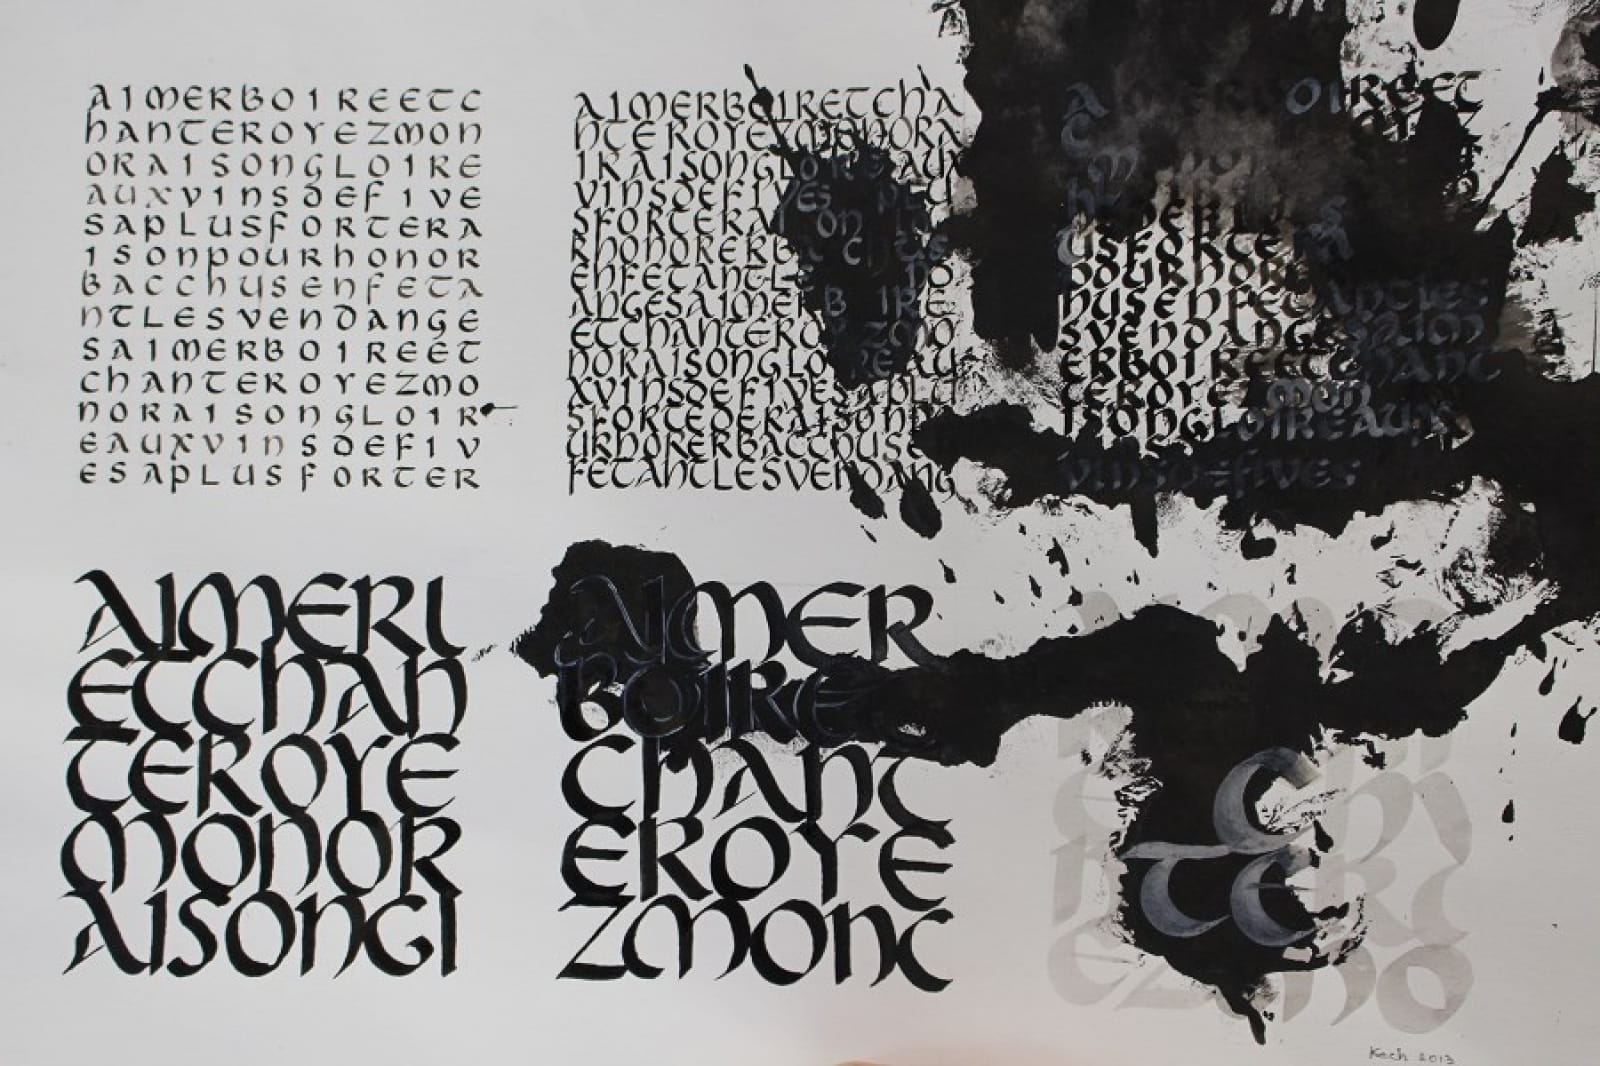 AIMERBOIREETC
HANTEROYEZMON
ORAISONGLOIRE
AUXVINSDEFIVE
SAPLUSFORTERA
ISONPOURHONOR
BACCHUSENFETA
NTLESVENDANGE
SAIMERBOIREET
CHANTEROYEZMO
NORAISONGLOIR
EAUXVINSDEFIV
ESAPLUSFORTER
AIMERBOIRETCHA
NTEROYEZMONORA
IRAISONGLOIREAUX
VINSDEFIVES
SFORTERAI ON
RHONORERBA CHUS
ENFETANTLE
ANGESAIMERB IRE
ETCHANTEROY ZMO
NORAISONGLOIREAU
XVINSDEFIVESAPLU
SFORTEDERAISONP
URHORERBACCHUSE
FETANTLESVENDANG
OIREET
USFORTE
POURHONOR
HUSENFETANTLES
SVENDANGESAIM
ERBOIREETCHANT
TEROYEZMON
ISONGLOIREAUX
VINSDEFIVES
AIMERI
ETCHAN
TEROYE
MONOR
AISONGI
AIMER
BOIRE
CHANT
EROYE
ZMONC
E
TE
EZMO
Kech 2013